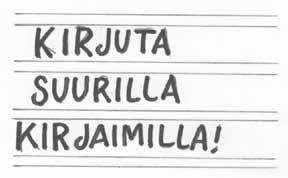 KIRJUTA
SUURILLA
KIRJAIMILLA!